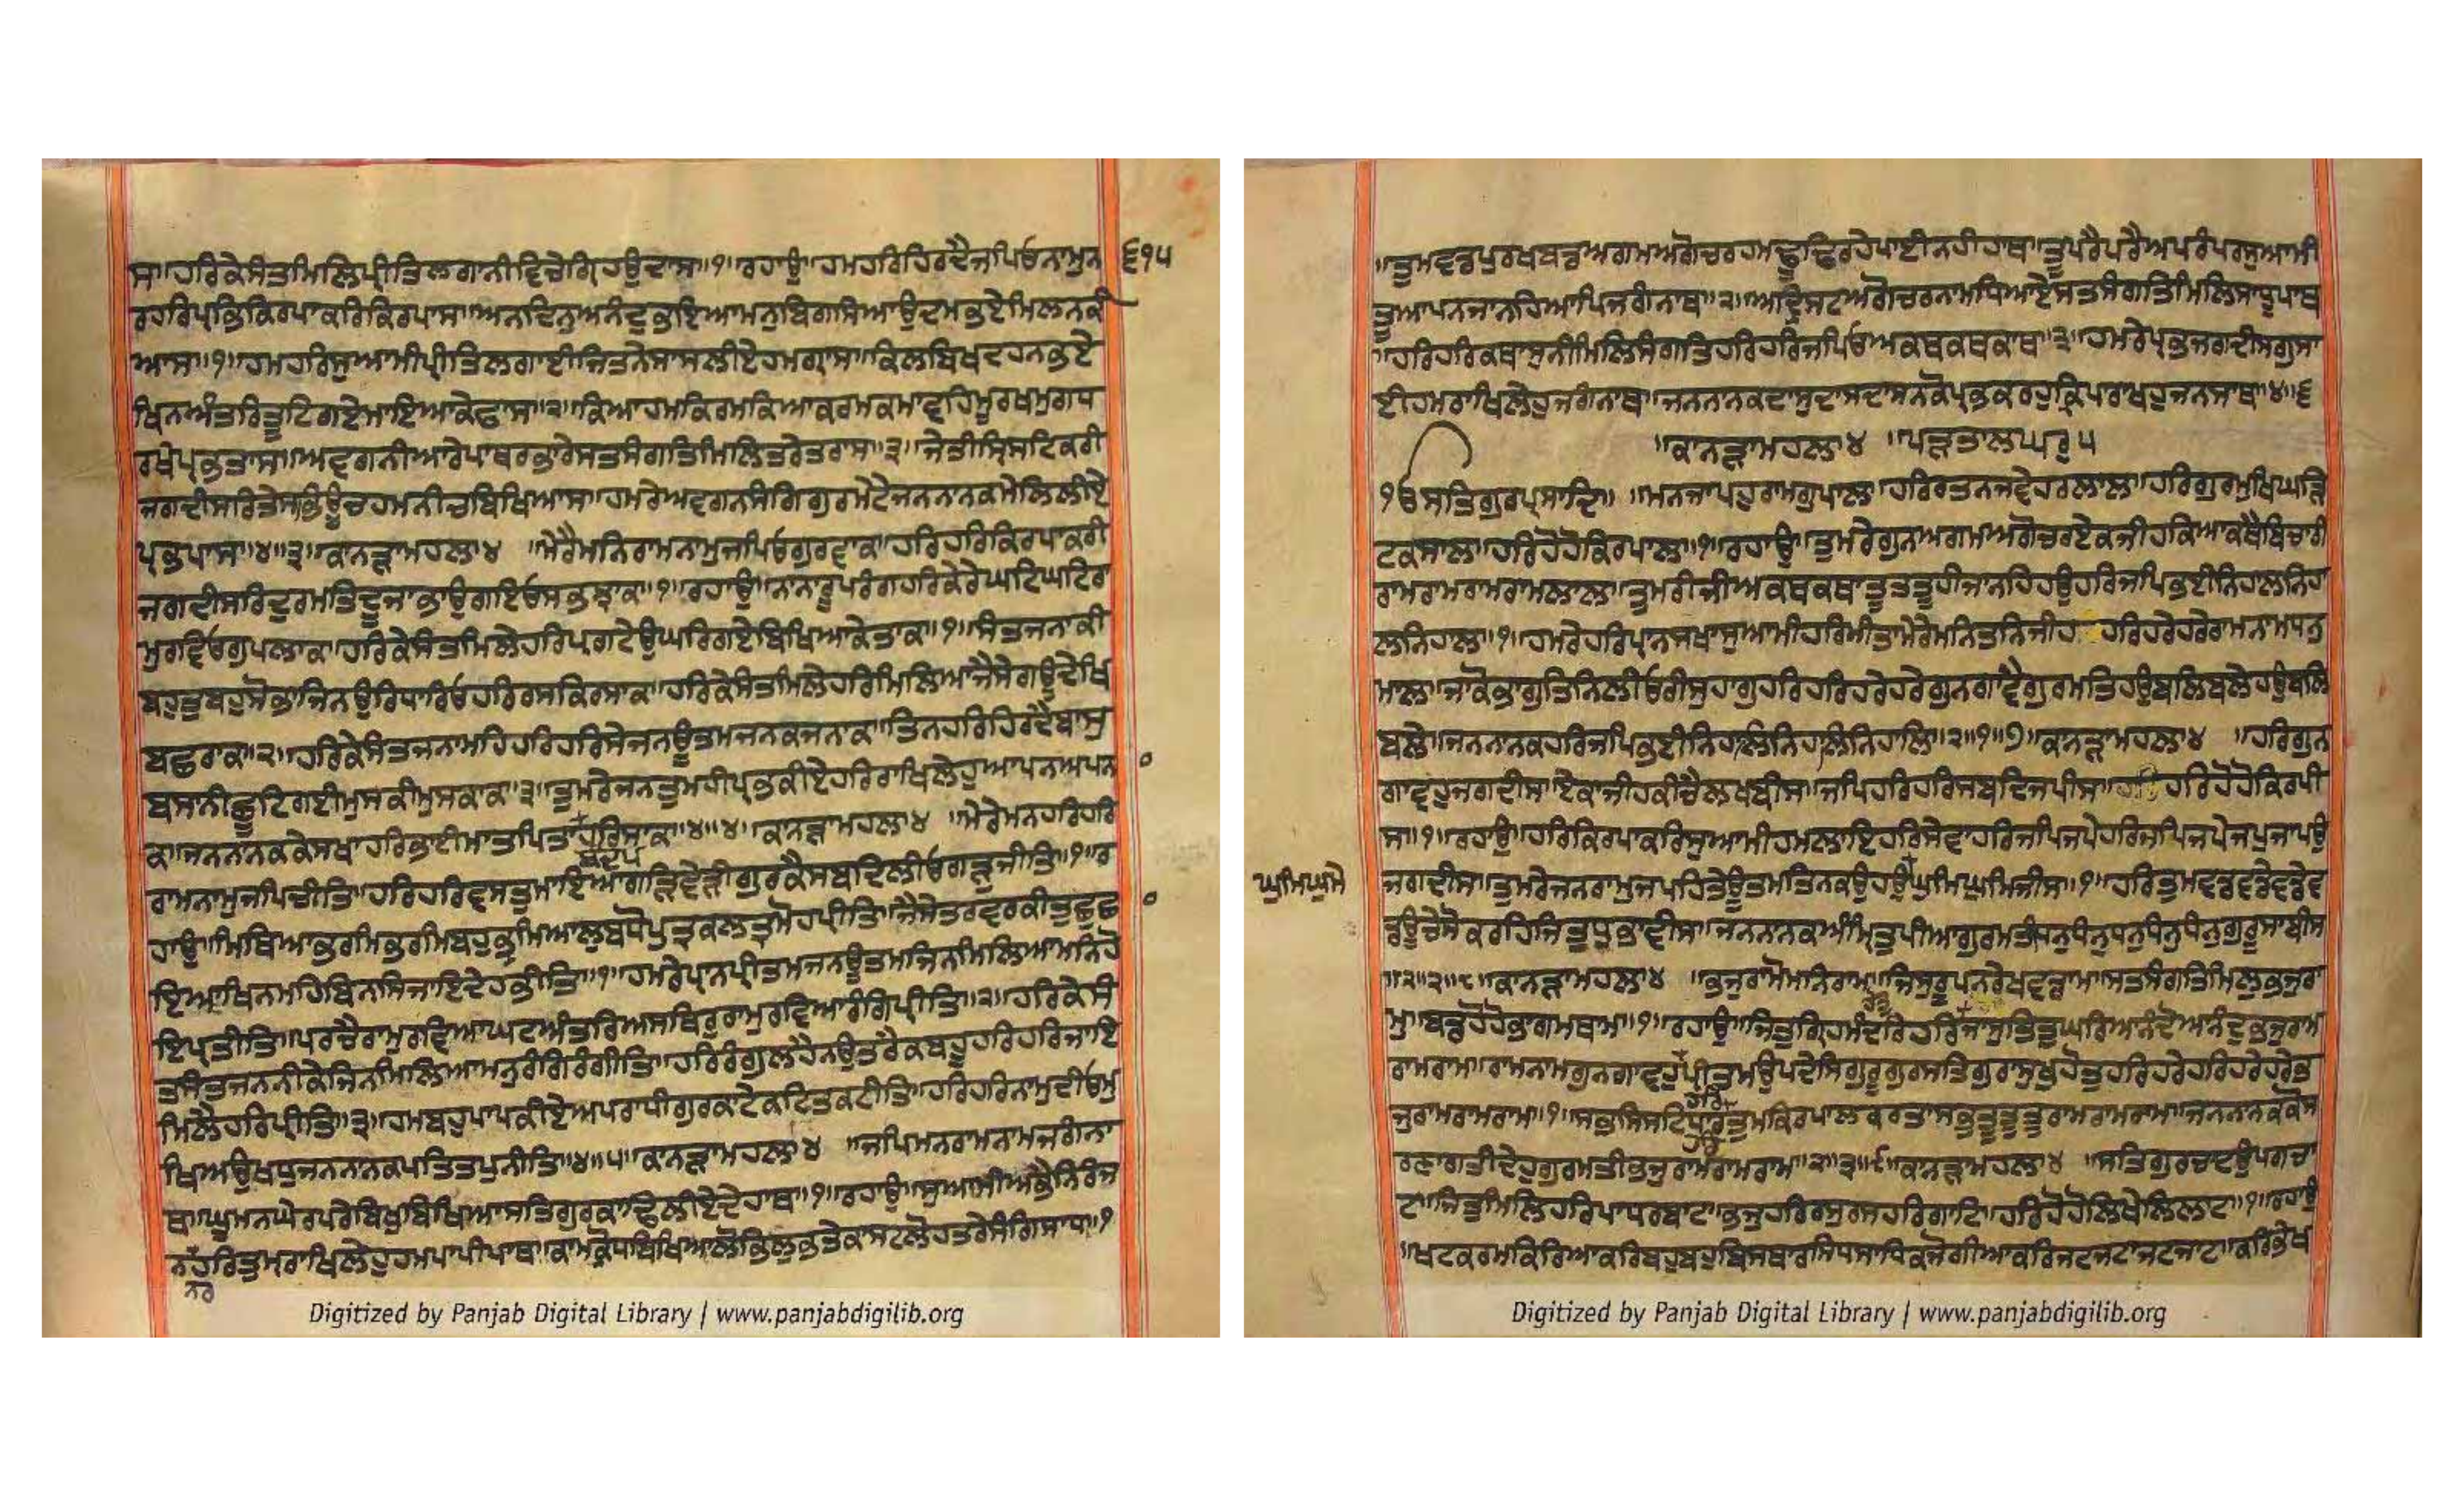 ਸਾ॥ਹਰਿਕੇਸੰਤਮਿਲਿਪ੍ਰੀਤਿਲਗਾਨੀਵਿਚੇਗਿ੍ਹਉਦਾਸ॥੧॥ਰਹਾਉ॥ਹਮਹਰਿਹਿਰਦੈਜਪਿਓਨਾਮੁਨ ੬੧੫
ਰਹਰਿਪ੍ਰਭਿਕਿਰਪਾਕਰਿਕਿਰਪਾਸ॥ਅਨਦਿਨੁਅਨੰਦੁਭਇਆਮਨੁਬਿਗਸਿਆਉਦਮਭਏਮਿਲਨਕੀ
ਆਸ॥੧॥ਹਮਹਰਿਸੁਆਮੀਪ੍ਰੀਤਿਲਗਾਈਜਿਤਨੇਸਾਸਲੀਏਹਮਗ੍ਰਾਸ॥ਕਿਲਬਿਖਦਹਨਭਏ
ਖਿਨਅੰਤਰਿਤੂਟਿਗਏਮਾਇਆਕੇਫਾਸ॥੨॥ਕਿਆਹਮਕਿਰਮਕਿਆਕਰਮਕਮਾਵਹਿਮੂਰਖਮੁਗਧ
ਰਖੇਪ੍ਰਭਤਾਸ॥ਅਵਗਨੀਆਰੇਪਾਥਰਭਾਰੇਸਤਸੰਗਤਿਮਿਲਿਤਰੇਤਰਾਸ॥੩॥ਜੇਤੀਸ੍ਰਿਸਟਿਕਰੀ
ਜਗਦੀਸਰਿਤੇਸਭਿਊਚਹਮਨੀਚਬਿਖਿਆਸ॥ਹਮਰੇਅਵਗਨਸੰਗਿਗੁਰਮੇਟੇਜਨਨਾਨਕਮੇਲਿਲੀਏ
ਪ੍ਰਭਪਾਸ॥੪॥੩॥ਕਾਨੜਾਮਹਲਾ੪ ॥ਮੇਰੈਮਨਿਰਾਮਨਾਮੁਜਪਿਓਗੁਰਵਾਕ॥ਹਰਿਹਰਿਕਿਰਪਾਕਰੀ
ਜਗਦੀਸਰਿਦੁਰਮਤਿਦੂਜਾਭਾਉਗਇਓਸਭਝਾਕ॥੧॥ਰਹਾਉ॥ਨਾਨਾਰੂਪਰੰਗਹਰਿਕੇਰੇਘਟਿਘਟਿਰਾ
ਮੁਰਵਿਓਗੁਪਲਾਕ॥ਹਰਿਕੇਸੰਤਮਿਲੇਹਰਿਪ੍ਰਗਟੇਉਘਰਿਗਏਬਿਖਿਆਕੇਤਾਕ॥੧॥ਸੰਤਜਨਾਕੀ
ਬਹੁਤੁਬਹੁਸੋਭਾਜਿਨਉਰਿਧਾਰਿਓਹਰਿਰਸਕਿਰਸਾਕ॥ਹਰਿਕੇਸੰਤਮਿਲੇਹਰਿਮਿਲਿਆਜੈਸੇਗਊਦੇਖਿ
ਬਛਰਾਕ॥੨॥ਹਰਿਕੇਸੰਤਜਨਾਮਹਿਹਰਿਹਰਿਸੇਜਨਊਤਮਜਨਕਜਨਾਕ॥ਤਿਨਹਰਿਹਿਰਦੈਬਾਸੁ
ਬਸਾਨੀਛੂਟਿਗਈਮੁਸਕੀਮੁਸਕਾਕ॥੩॥ਤੁਮਰੇਜਨਤੁਮਹੀਪ੍ਰਭਕੀਏਹਰਿਰਾਖਿਲੇਹੁਆਪਨਅਪਨ
ਕਾਜਨਨਾਨਕਕੇਸਖਾਹਰਿਭਾਈਮਾਤਪਿਤਾ+ਹਰਿਸਾਕ॥੪॥੪॥ਕਾਨੜਾਮਹਲਾ੪ ॥ਮੇਰੇਮਨਹਰਿਹਰਿ
ਬੰਧਪ
ਰਾਮਨਾਮੁਜਪਿਚੀਤਿ॥ਹਰਿਹਰਿਵਸਤੁਮਾਇਆਗੜਿਵੇੜੀਗੁਰਕੈਸਬਦਿਲੀਓਗੜੁਜੀਤਿ॥੧॥ਰ
ਹਾਉ॥ਮਿਥਿਆਭਰਮਿਭਰਮਿਬਹੁਭ੍ਰਮਿਆਲੁਬਧੋਪੁਤ੍ਰਕਲਤ੍ਰਮੋਹਪ੍ਰੀਤਿ॥ਜੈਸੇਤਰਵਰਕੀਤੁਛਛਾ
ਇਆਖਿਨਮਹਿਬਿਨਸਿਜਾਇਦੇਹਭੀਤਿ॥੧॥ਹਮਰੇਪ੍ਰਾਨਪ੍ਰੀਤਮਜਨਊਤਮਜਿਨਮਿਲਿਆਮਨਿਹੋ
ਇਪ੍ਰਤੀਤਿ॥ਪਰਚੈਰਾਮੁਰਵਿਆਘਟਅੰਤਰਿਅਸਥਿਰੁਰਾਮੁਰਵਿਆਰੰਗਿਪ੍ਰੀਤਿ॥੨॥ਹਰਿਕੇਸੰ
ਤਸੰਤਜਨਨੀਕੇਜਿਨਮਿਲਿਆਮਨੁਰੰਗਿਰੰਗੀਤਿ॥ਹਰਿਰੰਗੁਲਹੈਨਉਤਰੈਕਬਹੂਹਰਿਹਰਿਜਾਇ
ਮਿਲੈਹਰਿਪ੍ਰੀਤਿ॥੩॥ਹਮਬਹੁਪਾਪਕੀਏਅਪਰਾਧੀਗੁਰਕਾਟੇਕਟਿਤਕਟੀਤਿ॥ਹਰਿਹਰਿਨਾਮੁਦੀਓਮੁ
ਖਿਅਉਖਧੁਜਨਨਾਨਕਪਤਿਤਪੁਨੀਤਿ॥੪॥੫॥ਕਾਨੜਾਮਹਲਾ੪ ॥ਜਪਿਮਨਰਾਮਨਾਮਜਗੰਨਾ
ਥ॥ਘੂਮਨਘੇਰਪਰੇਬਿਖੁਬਿਖਿਆਸਤਿਗੁਰਕਾਢਿਲੀਏਦੇਹਾਥ॥੧॥ਰਹਾਉ॥ਸੁਆਮੀਅਭੈਨਿਰੰਜ
ਨਹਰਿਤੁਮਰਾਖਿਲੇਹੁਹਮਪਾਪੀਪਾਥ॥ਕਾਮਕ੍ਰੋਧਬਿਖਿਆਲੋਭਿਲੁਭਤੇਕਾਸਟਲੋਹਤਰੇਸੰਗਿਸਾਥ॥੧
ਨਰ
Digitized by Panjab Digital Library | www.panjabdigilib.org
॥ਤੁਮਵਡਪੁਰਖਬਡਅਗਮਅਗੋਚਰਹਮਢੂਢਿਰਹੇਪਾਈਨਹੀਹਾਥ॥ਤੂਪਰੈਪਰੈਅਪਰੰਪਰਸੁਆਮੀ
ਤੂਆਪਨਜਾਨਹਿਆਪਿਜਗੰਨਾਥ॥੨॥ਅਦ੍ਰਿਸਟਅਗੋਚਰਨਾਮਧਿਆਏਸਤਸੰਗਤਿਮਿਲਿਸਾਧੂਪਾਥ
॥ਹਰਿਹਰਿਕਥਾਸੁਨੀਮਿਲਿਸੰਗਤਿਹਰਿਹਰਿਜਪਿਓਅਕਥਕਥਕਾਥ॥੩॥ਹਮਰੇਪ੍ਰਭਜਗਦੀਸਗੁਸਾ
ਈਹਮਰਾਖਿਲੇਹੁਜਗੰਨਾਥ॥ਜਨਨਾਨਕਦਾਸੁਦਾਸਦਾਸਨਕੋਪ੍ਰਭਕਰਹੁਕ੍ਰਿਪਾਰਾਖਹੁਜਨਸਾਥ॥੪॥੬
॥ਕਾਨੜਾਮਹਲਾ੪ ॥ਪੜਤਾਲਘਰੁ੫
ੴਸਤਿਗੁਰਪ੍ਰਸਾਦਿ॥ ॥ਮਨਜਾਪਹੁਰਾਮਗੁਪਾਲ॥ਹਰਿਰਤਨਜਵੇਹਰਲਾਲ॥ਹਰਿਗੁਰਮੁਖਿਘੜਿ
ਟਕਸਾਲ॥ਹਰਿਹੋਹੋਕਿਰਪਾਲ॥੧॥ਰਹਾਉ॥ਤੁਮਰੇਗੁਨਅਗਮਿਅਗੋਚਰਏਕਜੀਹਕਿਆਕਥੈਬਿਚਾਰੀ
ਰਾਮਰਾਮਰਾਮਰਾਮਲਾਲ॥ਤੁਮਰੀਜੀਅਕਥਕਥਾਤੂਤੂਤੂਹੀਜਾਨਹਿਹਉਹਰਿਜਪਿਭਈਨਿਹਾਲਨਿਹਾ
ਲਨਿਹਾਲ॥੧॥ਹਮਰੇਹਰਿਪ੍ਰਾਨਸਖਾਸੁਆਮੀਹਰਿਮੀਤਾਮੇਰੇਮਨਿਤਨਿਜੀਹ ਹਰਿਹਰੇਹਰੇਰਾਮਨਾਮਧਨੁ
ਮਾਲ॥ਜਾਕੋਭਾਗੁਤਿਨਿਲੀਓਰੀਸੁਹਾਗੁਹਰਿਹਰਿਹਰੇਹਰੇਗੁਨਗਾਵੈਗੁਰਮਤਿਹਉਬਲਿਬਲੇਹਉਬਲਿ
ਬਲੇ॥ਜਨਨਾਨਕਹਰਿਜਪਿਭਈਨਿਹਾਲਿਨਿਹਾਲਿਨਿਹਾਲਿ॥੨॥੧॥੭॥ਕਾਨੜਾਮਹਲਾ੪ ॥ਹਰਿਗੁਨ
ਗਾਵਹੁਜਗਦੀਸ॥ਏਕਾਜੀਹਕੀਚੈਲਖਬੀਸ॥ਜਪਿਹਰਿਹਰਿਸਬਦਿਜਪੀਸ॥ਹਰਿਹੋਹੋਕਿਰਪੀ
ਸ॥੧॥ਰਹਾਉ॥ਹਰਿਕਿਰਪਾਕਰਿਸੁਆਮੀਹਮਲਾਇਹਰਿਸੇਵਾਹਰਿਜਪਿਜਪੇਹਰਿਜਪਿਜਪੇਜਪੁਜਾਪਉ
ਘੁਮਿਘੁਮੇ ਜਗਦੀਸ॥ਤੁਮਰੇਜਨਰਾਮੁਜਪਹਿਤੇਊਤਮਤਿਨਕਉਹਉਘੁਮਿਘੁਮਿਜੀਸ॥੧॥ਹਰਿਤੁਮਵਡਵਡੇਵਡੇਵ
ਡਊਚੇਸੋਕਰਹਿਜਿਤੁਧੁਭਾਵੀਸ॥ਜਨਨਾਨਕਅੰਮ੍ਰਿਤੁਪੀਆਗੁਰਮਤੀਧਨੁਧੰਨੁਧਨੁਧੰਨੁਧੰਨੁਗੁਰੂਸਾਬੀਸ
॥੨॥੨॥੮॥ਕਾਨੜਾਮਹਲਾ੪ ॥ਭਜੁਰਾਮੋਮਨਿਰਾਮ॥ਜਿਸੁਰੂਪਨਰੇਖਵਡਾਮ॥ਸਤਸੰਗਤਿਮਿਲੁਭਜੁਰਾ
ਮ॥ਬਡਹੋਹੋਭਾਗਮਥਾਮ॥੧॥ਰਹਾਉ॥ਜਿਤੁਗ੍ਰਿਹਮੰਦਰਿਹਰਿ+ਜਾਸੁਤਿਤੁਘਰਿਅਨੰਦੋਅਨੰਦੁਭਜੁਰਾਮ
ਰਾਮਰਾਮ॥ਰਾਮਨਾਮਗੁਨਗਾਵਹੁ+ਪ੍ਰੀਤਮਉਪਦੇਸਿਗੁਰੂਗੁਰਸਤਿਗੁਰਾਸੁਖੁਹੋਤੁਹਰਿਹਰੇਹਰਿਹਰੇਹਰੇਭ
ਹਰਿ
ਜੁਰਾਮਰਾਮਰਾਮ॥੧॥ਸਭਸਿਸਟਿਧਾਰਤੁਮਕਿਰਪਾਲਕਰਤਾਸਭੁਤੂਤੂਤੂਰਾਮਰਾਮਰਾਮ॥ਜਨਨਾਨਕਕੋਸ
ਰਣਾਗਤੀਦੇਹੁਗੁਰਮਤੀਭਜੁਰਾਮਰਾਮਰਾਮ॥੨॥੩॥੯॥ਕਾਨੜਾਮਹਲਾ੪ ॥ਸਤਿਗੁਰਚਾਟਉਪਗਚਾ
ਟ॥ਜਿਤੁਮਿਲਿਹਰਿਪਾਧਰਬਾਟ॥ਭਜੁਹਰਿਰਸੁਰਸਹਰਿਗਾਟਿ॥ਹਰਿਹੋਹੋਲਿਖੇਲਿਲਾਟ॥੧॥ਰਹਾਉ
॥ਖਟਕਰਮਕਿਰਿਆਕਰਿਬਹੁਬਹੁਬਿਸਥਾਰਸਿਧਸਾਧਿਕਜੋਗੀਆਕਰਿਜਟਜਟਾਜਟਜਾਟ॥ਕਰਿਭੇਖ
Digitized by Panjab Digital Library | www.panjabdigilib.org